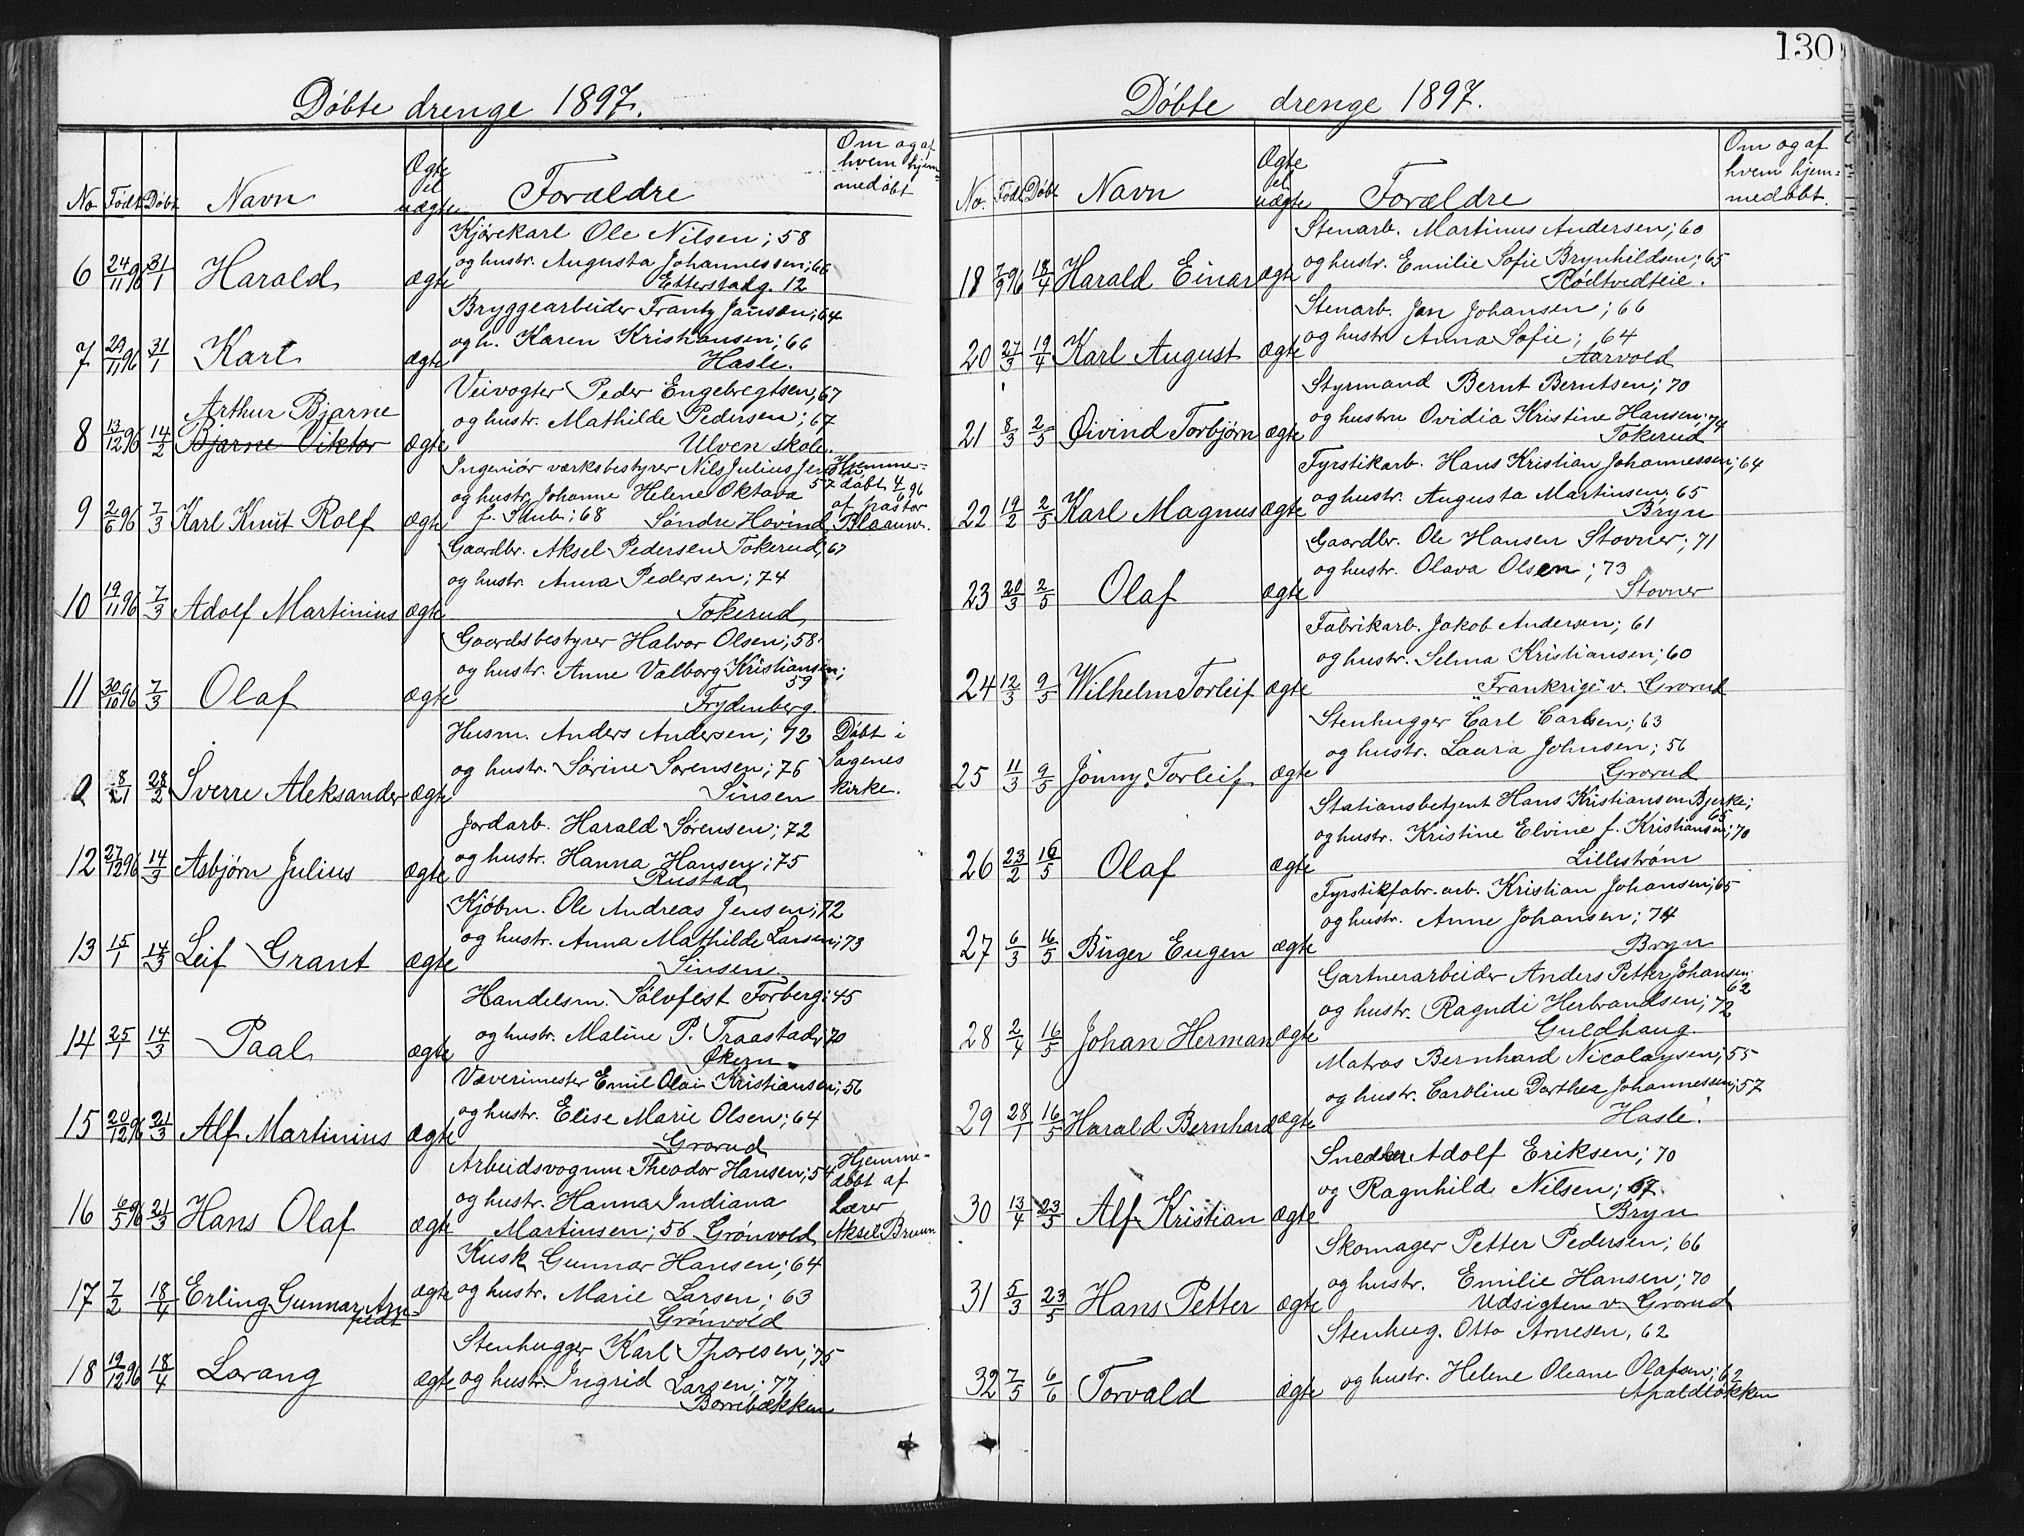 130
Døbte drenge 1897.
No Født Døbt Navn Ægte el uægte Forældre Om og af hvem hjem=medøbt
Kjørekarl Ole Nilsen; 58
og hustr. Augusta Johannessen; 66
6 24/11 96 31/1 Harald ægte Etterstadg. 12
Bryggearbeider Frantz Jansen; 64
og h. Karen Kristiansen; 66
7 29/11 96 31/1 Karl ægte Hasle.
Veivogter Peder Engebregtsen; 67
Arthur Bjarne og hustr. Mathilde Pedersen; 67
8 13/12 96 14/2 Bjarne Viktor ægte Ulven skole.
Ingeniør værksbestyrer Nils Julius Jensen, 57 Hjemme=
og hustr. Johanne Helene Oktava døbt 4/6 96
9 2/6 96 7/3 Karl Knut Rolf ægte f. Staub; 68 Søndre Hovind af pastor Blaauw.
Gaardbr. Aksel Pedersen Tokerud; 67
og hustr. Anna Pedersen; 74
10 19/11 96 7/3 Adolf Martinius ægte Tokerud
Gaardsbestyrer Halvor Olsen; 58
og hustr. Anne Valborg Kristiansen; 59
11 30/10 96 7/3 Olaf ægte Frydenberg.
Husm. Anders Andersen; 72 Døbt i
og hustr. Sørine Sørensen; 76 Sagenes
2 8/1 28/2 Sverre Aleksander ægte Sinsen kirke.
Jordarb. Harald Sørensen; 72
og hustr. Hanna Hansen; 75
12 27/12 96 14/3 Asbjørn Julius ægte Rustad
Kjøbm. Ole Andreas Jensen; 72
og hustr. Anna Mathilde Larsen; 73
13 15/1 14/3 Leif Grant ægte Sinsen
Handelsm. Sølvfest Forberg; 45
og hustr. Maline P. Traastad; 70
14 25/1 14/3 Paal ægte Økern
Væverimester Emil Olai Kristiansen; 56
og hustr. Elise Marie Olsen; 64
15 20/12 96 21/3 Alf Martinius ægte Grorud
Arbeidsvognm Theodor Hansen; 54 Hjemme=
og hustr. Hanna Indiana døbt af
16 6/5 96 21/3 Hans Olaf ægte Martinsen; 56 Grønvold Lærer Aksel Bruun
Kusk Gunnar Hansen; 64
17 7/2 18/4 Erling Gunnar Arn= ægte og hustr. Marie Larsen; 63
feldt Grønvold
Stenhugger Karl Thoresen; 75
18 19/12 96 18/4 Lorang ægte og hustr. Ingrid Larsen; 77
Borrebækken
Døbte drenge 1897.
No. Født Døbt Navn Ægte el uægte Forældre Om og af hvem hjem=medøbt.
Stenarb. Martinus Andersen; 60
og hustr. Emilie Sofie Brynhildsen; 65
18 7/9 96 18/4 Harald Einar ægte Rødtvedteie.
Stenarb. Jon Johansen; 66
og hustr Anna Sofie; 64
20 27/3 19/4 Karl August ægte Aarvold
Styrmand Bernt Berntsen; 70
og hustru Ovidia Kristine Hansen; 74
21 8/3 2/5 Øivind Torbjørn ægte Tokerud
Fyrstikarb. Hans Kristian Johannessen; 64
og hustr. Augusta Martinsen; 65
22 19/2 2/5 Karl Magnus ægte Bryn
Gaardbr. Ole Hansen Stovner; 71
og hustr. Olava Olsen; 73
23 20/3 2/5 Olaf ægte Stovner
Fabrikarb. Jakob Andersen; 61
og hustr. Selma Kristiansen; 60
24 12/3 9/5 Wilhelm Torleif ægte "Frankrige" v. Grorud
Stenhugger Carl Carlsen; 63
og hustr. Laura Johnsen; 56
25 11/3 9/5 Jonny Torleif ægte Grorud
Stationsbetjent Hans Kristiansen Bjerke; 65
og hustr. Kristine Elvine f. Kristiansen; 70
26 23/2 16/5 Olaf ægte Lillestrøm
Fyrstikfabr. arb. Kristian Johansen; 65
og hustr. Anne Johansen; 74
27 6/3 16/5 Birger Eugen ægte Bryn
Gartnerarbeider Anders Petter Johansen 62
og hustr. Ragndi Herbrandsen; 72
28 2/4 16/5 Johan Herman ægte Guldhaug.
Matros Bernhard Nicolaysen; 55
og hustr. Caroline Dorthea Johannessen; 57
29 28/1 16/5 Harald Bernhard ægte Hasle.
Snedker Adolf Eriksen; 70
og Ragnhild Nilsen; 67.
30 13/4 23/5 Alf Kristian ægte Bryn
Skomager Petter Pedersen; 66
og hustr. Emilie Hansen; 70
31 5/3 23/5 Hans Petter ægte Udsigten v. Grorud
Stenhug. Otto Arnesen, 62
og hustr. Helene Oleane Olafsen; 62
32 7/5 6/6 Torvald ægte Apaldløkken